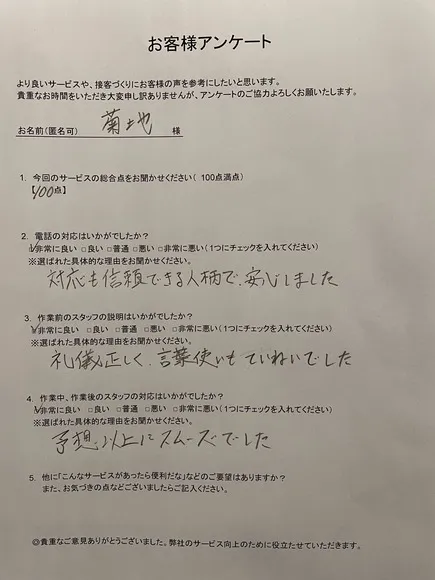 お客様アンケート
より良いサービスや、接客づくりにお客様の声を参考にしたいと思います。
貴重なお時間をいただき大変申し訳ありませんが、アンケートのご協力よろしくお願いいたします。
お名前(匿名可) 菊地 様
1. 今回のサービスの総合点をお聞かせください( 100点満点)
【100点】
2. 電話の対応はいかがでしたか?
☑非常に良い □良い □普通 □悪い □非常に悪い(1つにチェックを入れてください)
※選ばれた具体的な理由をお聞かせください。
対応も信頼できる人柄で、安心しました
3. 作業前のスタッフの説明はいかがでしたか?
☑非常に良い □良い □普通 □悪い □非常に悪い(1つにチェックを入れてください)
※選ばれた具体的な理由をお聞かせください。
礼儀正しく、言葉使いもていねいでした
4. 作業中、作業後のスタッフの対応はいかがでしたか?
☑非常に良い □良い □普通 □悪い □非常に悪い(1つにチェックを入れてください)
※選ばれた具体的な理由をお聞かせください。
予想以上にスムーズでした
5. 他に「こんなサービスがあったら便利だな」などのご要望はありますか?
また、お気づきの点などございましたらご記入ください。
◎貴重なご意見ありがとうございました。弊社のサービス向上のために役立たせていただきます。